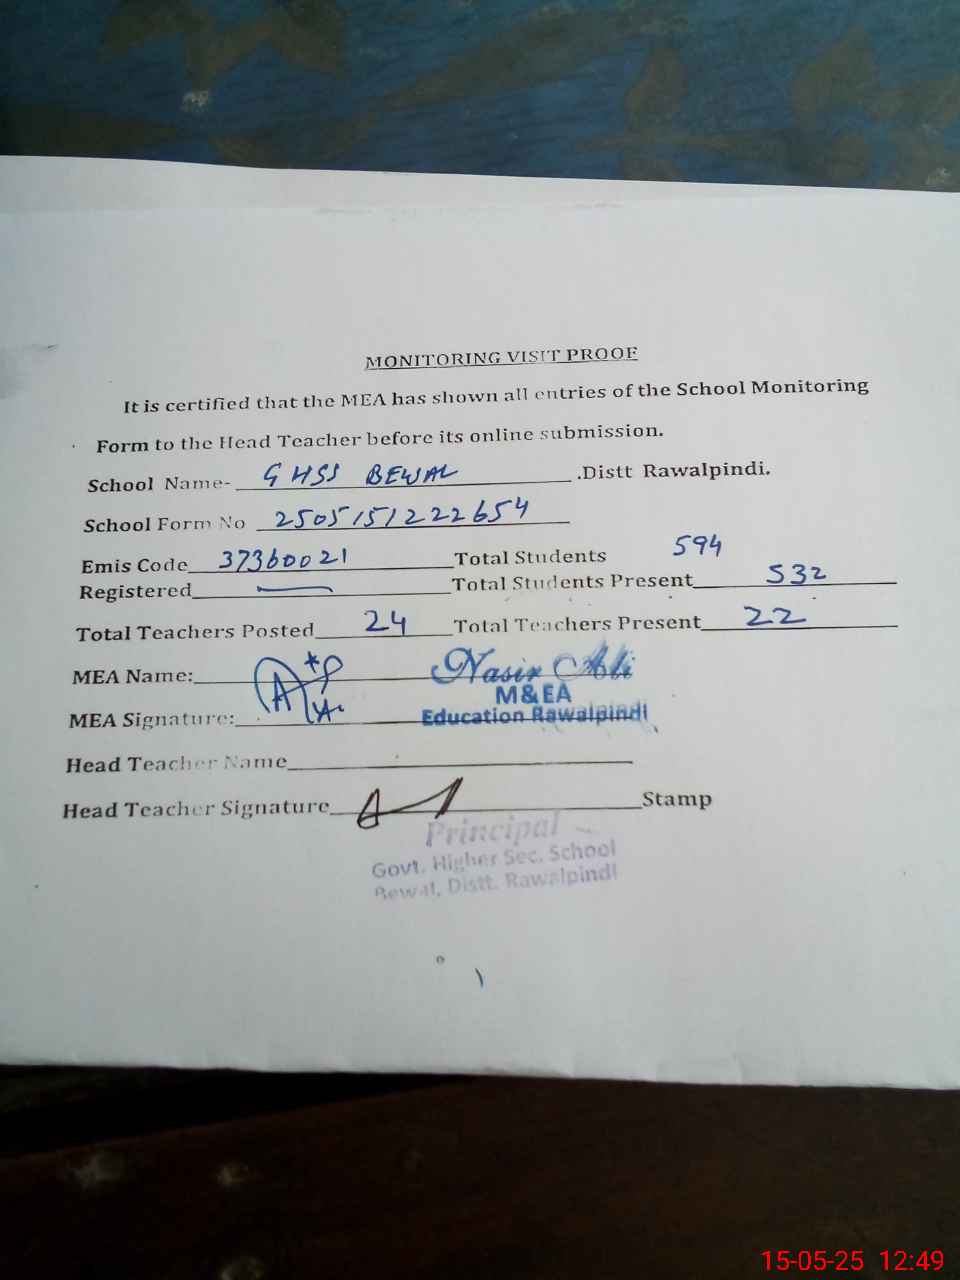 MONITORING VISIT PROOF
It is certified that the MEA has shown all entries of the School Monitoring
Form to the Head Teacher before its online submission.
School Name- GHSS BEWAL .Distt Rawalpindi.
School Form No 2505151222654
Emis Code 37360021 Total Students 594
Registered — Total Students Present 532
Total Teachers Posted 24 Total Teachers Present 22
MEA Name: Nasir Ali
M&EA
MEA Signature: Education Rawalpindi
Head Teacher Name
Head Teacher Signature Stamp
Principal
Govt. Higher Sec. School
Bewal, Distt. Rawalpindi
15-05-25 12:49